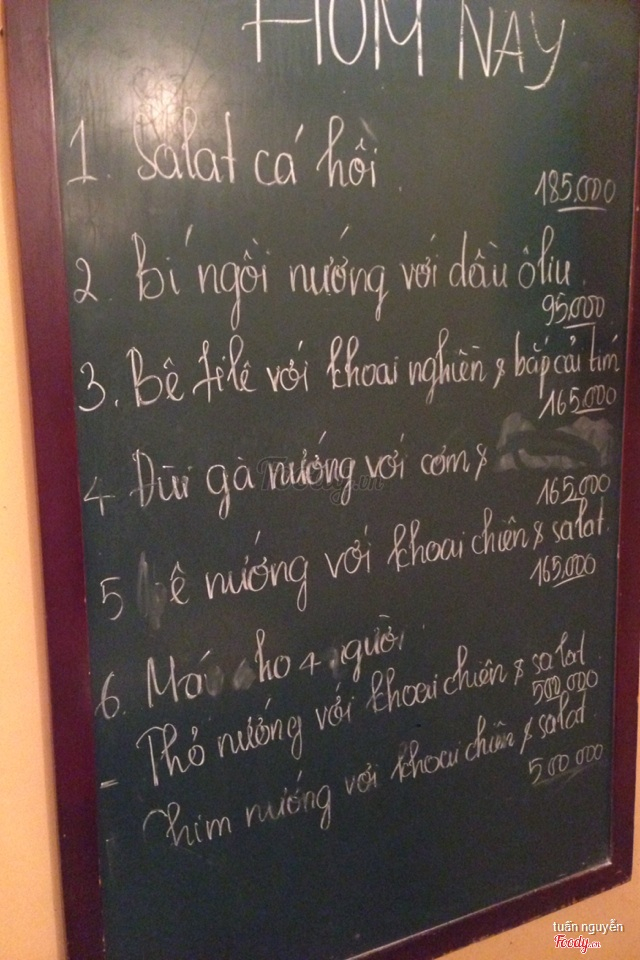 HÔM NAY
1. Salat cá hồi
185.000
2. Bí ngồi nướng với dầu ôliu
95.000
3. Bê filê với khoai nghiền & bắp cải tím
165.000
4. Đùi gà nướng với cơm &
165.000
5 ê nướng với khoai chiên & salat
165.000
6. Mó ho 4 gười
- Thỏ nướng với khoai chiên & salat
500.000
- Chim nướng với khoai chiên & salat
500.000
Foody.vn
tuấn nguyễn
Foody.vn